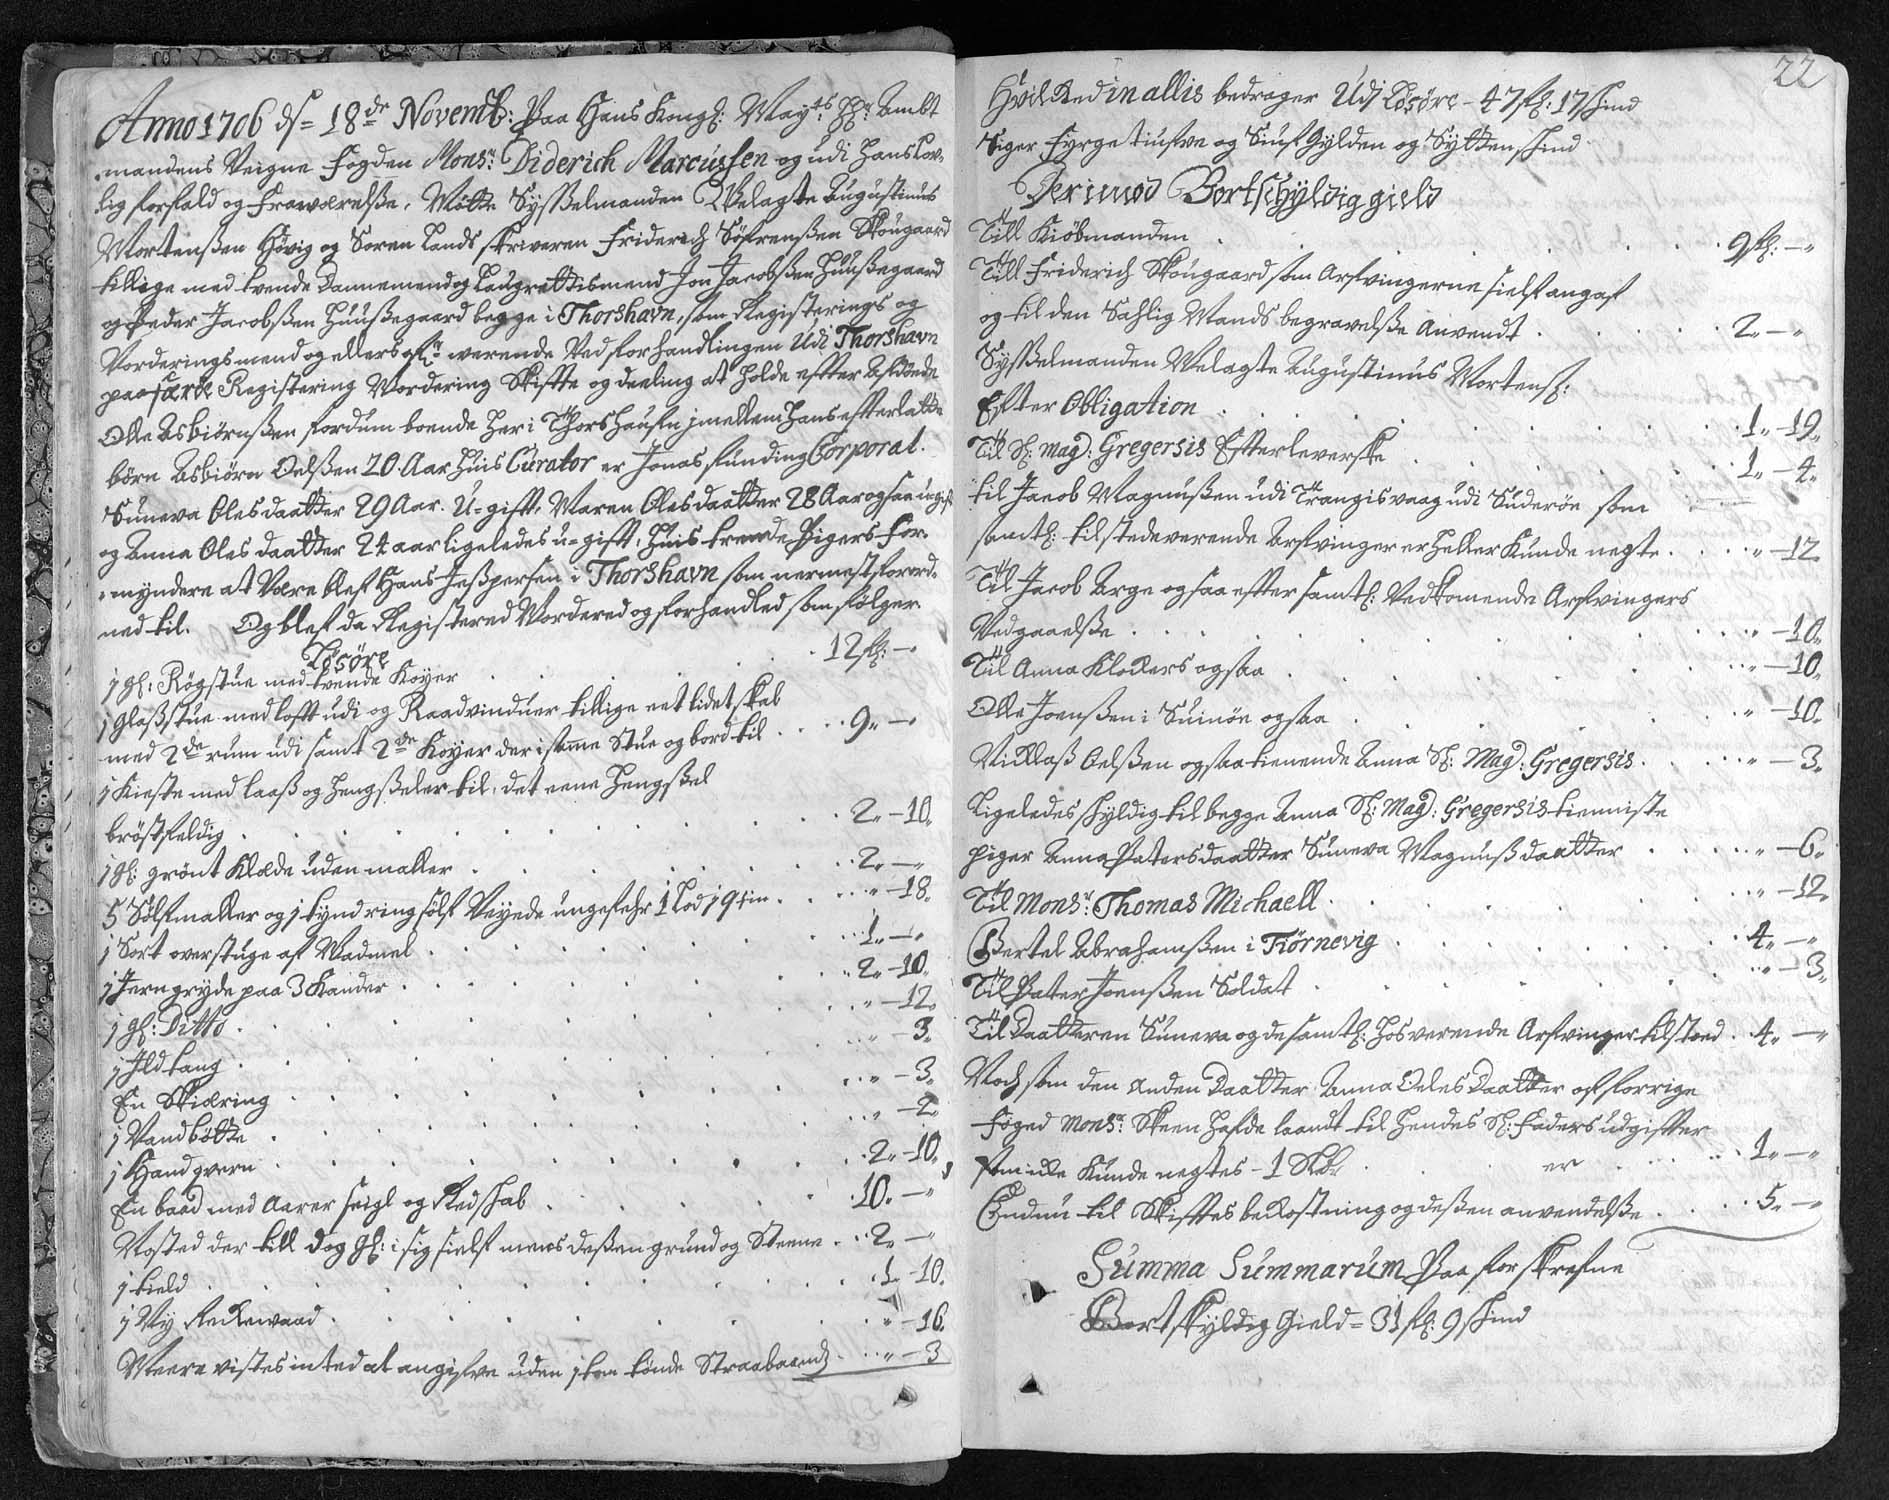 Anno 1706 ds= 18de Novemb: Paa Hans Kongl: Mayts Hr: Ambt
mandens Veigne Fogden Monsr: Diderich Marcussen og udi Hans Lov-
lig forfald og Frawærelsse, Mötte Sysselmanden Welagte Augustinus
Mortenssen Höyig og Soren Lands skriveren Friderich Söfrenssen Skougaard
tillige med tvende Dannemend og Laugrettismend Jon Jacobssen Huussegaard
og Peder Jacobssen Huussegaard begge i Thorshavn, som Registerings og
Vorderingsmend og ellers werende Ved forhandlingen Udi Thorshavn
paa Registering Vordering Skifte og deeling at holde effter Afdöede
Olle Asbiörnssen fordum boende her i Thorshaufn jmellem Hans efterlatte
börn Asbiörn Oelssen 20 Aar huis Curator er Jonas funding Corporal.
Suneva Olesdaatter 29 Aar. U=gift, Maren Olesdaatter 28 Aar ogsaa u=gift
og Anna Oles daatter 24 aar ligeledes u=gift, Huis trende Pigers For-
myndere at Være blef Hans Jesspersen i Thorshavn som nermest forord-
ned til. Og blef da Registered Vordered og forhandled som fölger
Lösöre
1 gl: Rögstue med tvende Koyer . . . 12 fl: -"
1 Glasstue med loft udi og Raadvinduer tillige eet lidet skab
med 2de rum udi samt 2de Koyer der i samme Stue og bord til . . 9" -"
1 Kieste med laass og Hengsseler til, det eene Hengssel
bröstfeldig . . . 2" -10"
1 gl: grönt Klæde uden maller . . . 2" -"
5 Sölfmaller og 1 kyndring sölf Veyede ungefehr 1 Lod 19 tin . . " -18"
1 Sort overstuge af Wadmel . . . 1" -"
1 Jerngryde paa 3 Kander . . . 2" -10"
1 gl: Ditto . . . " -12"
1 Ildtang . . . " -3"
En Skiæring . . . " -3"
1 Vandbötte . . . " -2"
1 Handqvern . . . 2" -10"
En baad med Aarer seigl og Redskab . . . 10" -"
Nosted der till dog gl: i sig sielf mens dessen grund og Steene . . 2" -"
1 tield . . . 1" -10"
1 Ny Reckevaad . . . " -16"
Meere vistes inted at angifve uden 1 tom tönde Straabaand . . " -3
22
Hvilked in allis bedrager Udj Lösöre - 47 fl: 17 skind
Siger Fyrgetiufve og Siuf Gylden og Sytten skind
Derimod Bortschÿldig gield
Till Kiöbmanden . . . 9 fl: -"
Till Friderich Skougaard som Arfvingerne sielf angaf
og til den Sahlig Mands begravelsse Anvendt . . . 2" -"
Sysselmanden Welagte Augustinus Mortens:
Efter Obligation . . . 1" -19"
Til Sl: Mag: Gregersis Efterleverske . . . 1" -4"
til Jacob Magnussen udi Trangisvaag udi Suderöe som
samtl: tilstedeverende Arfvinger er heller Kunde negte . . . " -12
Til Jacob Arge ogsaa effter samtl: Vedkomende Arfvingers
Vedgaaelsse . . . " -10"
Til Anna Klockers ogsaa . . . " -10"
Olle Joenssen i Suinöe ogsaa . . . " -10"
Nicklass Oelssen ogsaa tienende Anna Sl: Mag: Gregersis . . . " -3"
Ligeledes skyldig til begge Anna Sl: Mag: Gregersis tienniste
piger Anna Patersdaatter Suneva Magnussdaatter . . . " -6"
Til Monsr: Thomas Michaell . . . " -12"
Bertel Abrahamssen i Tiörnevig . . . 4" -"
Til Pater Joenssen Soldat . . . " -3"
Til Daatteren Suneva og de samtl: hosverende Arfvinger tilstoed . 4" -"
Noch som den Anden Daatter Anna Oeles Daatter af forrige
Foged Monsr: Skeen hafde laandt til Hendes Sl: Faders udgifter
som icke Kunde negtes - 1 er . . . 1" -"
Endnu til Skifttes bekostning og dessen anvendelsse . . . 5" -"
Summa Summarum Paa forskrefne
Bortskyldig Gield = 31 fl: 9 skind